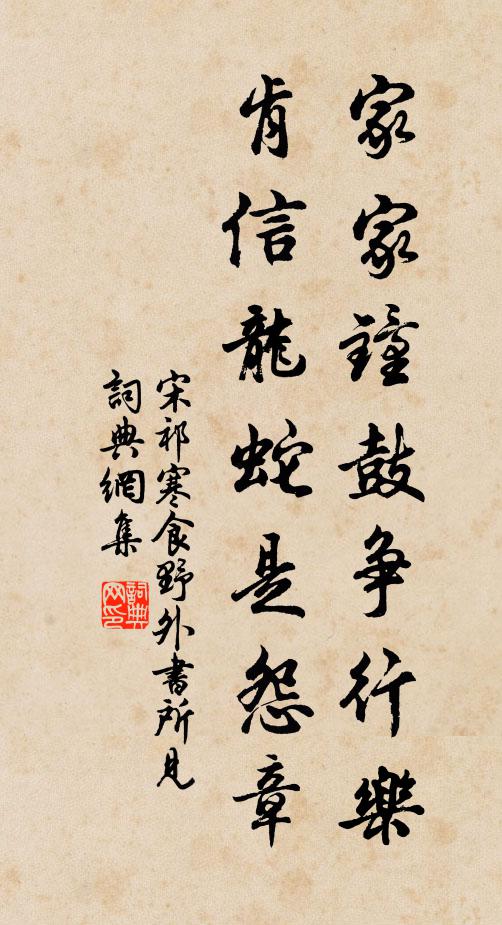 家家鐘鼓争行樂
肯信龍蛇是怨章
宋祁寒食野外書所見
詞典網集
詞典網印